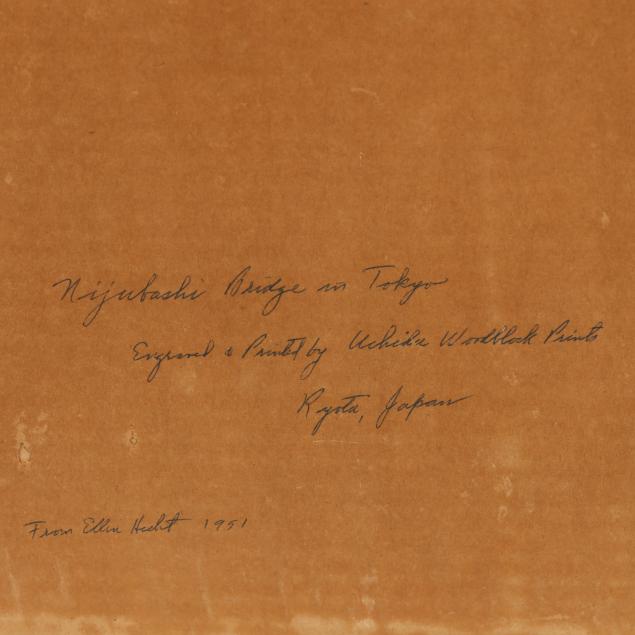 Nijubashi Bridge in Tokyo
Engraved & Printed by Uchida Woodblock Prints
Kyoto, Japan
From Ellen Hecht 1951